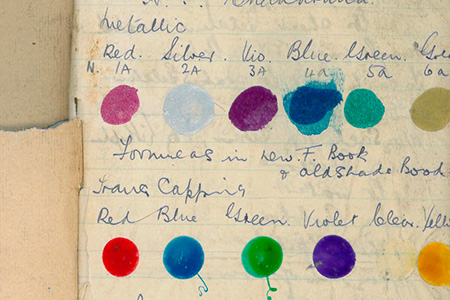 Metallic
Red. Silver. Vio. Blue. Green.
N. 1A 2A 3A 4a 5a 6a
Formulas in new. F. Book
& old shade Book
Trans Capping
Red Blue Green. Violet Clear. Yello